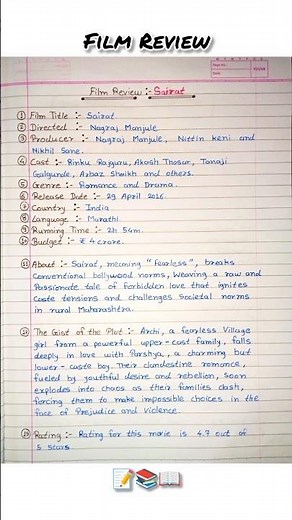 Film Review
Film Review :- Sairat
① Film Title :- Sairat
② Directed :- Nagraj Manjule
③ Producer :- Nagraj Manjule, Nittin Keni and
Nikhil Sane.
④ Cast :- Rinku Rajguru, Akash Thosar, Tanaji
Galgunde, Arbaz Shaikh and others.
⑤ Genre :- Romance and Drama.
⑥ Release Date :- 29 April 2016.
⑦ Country :- India
⑧ Language :- Marathi
⑨ Running Time :- 2h 54m.
⑩ Budget :- ₹ 4 crore.
⑪ About :- Sairat, meaning "Fearless", breaks
Conventional bollywood norms, Weaving a raw and
Passionate tale of Forbidden love that ignites
Caste tensions and challenges Societal norms
in rural Maharashtra.
⑫ The Gist of the Plot :- Archi, a fearless Village
girl from a powerful upper-cast family, falls
deeply in love with Parshya, a charming but
lower-caste boy. Their clandestine romance,
fueled by youthful desire and rebellion, Soon
explodes into chaos as their families clash,
forcing them to make impossible choices in the
face of Prejudice and Violence.
⑬ Rating :- Rating for this movie is 4.7 out of
5 stars.